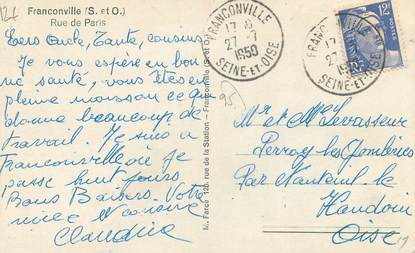 Franconville (S. et O.)
Rue de Paris
Chers Oncle, Tante, cousins
Je vous espère en bon
ne santé, vous êtes en
pleine moisson ce qui
donne beaucoup de
travail. Je suis à
Franconville où je
passe huit jours
Bons Baisers. Votre
nièce et cousine
Claudine
M. Farce 12b. rue de la Station — Franconville (S. et O.)
FRANCONVILLE
17 H
27-7
1950
SEINE-ET-OISE
FRANCONVILLE
17
27-7
1950
SEINE-ET-OISE
12F
Mr et Me Levasseur
Perroy les Gombries
Par Nanteuil le
Haudoin
Oise